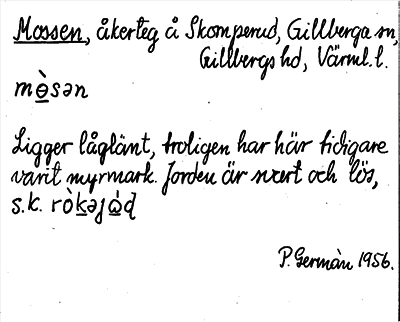 Mossen, åkerteg å Skomperud, Gillberga sn,
Gillbergs hd, Värml. l.
mò̲sən
Ligger låglänt, troligen har här tidigare
varit myrmark. Jorden är svart och lös,
s.k. ròk̲əjò̲ɖ
P. Germàn 1956.